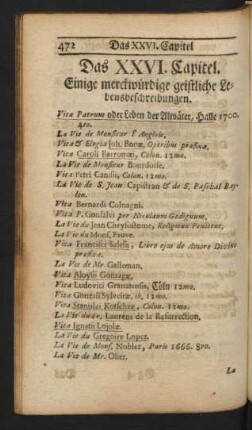 472 Das XXVI. Capitel
Das XXVI. Capitel.
Einige merckwürdige geistliche Le-
bensbeschreibungen.
Vitæ Patrum oder Leben der Altväter, Halle 1700.
4to.
La Vie de Monsieur l' Angloie,
Vita & Elogia Joh. Bonæ, Operibus præfixa.
Vita Caroli Borromæi, Colon. 12mo.
La Vie de Monsieur Bourdoise.
Vita Petri Canisii, Colon. 12mo.
La Vie de S. Jean Capistran & de S. Paschal Bay-
lon.
Vita Bernardi Colnagni.
Vita P. Gonsalvi per Nicolaum Godignum.
La Vie de Jean Chrysostome, Religieux Penitent.
La Vie du Mons. Feuve.
Vita Francisci Salesii, Libro ejus de Amore Divino
præfixa.
La Vie de Mr. Galleman.
Vita Aloysii Gonzagæ.
Vita Ludovici Granatensis, Cöln 12mo.
Vita Gonzali Sylveiræ, ib. 12mo.
Vita Stanislai Kotschkæ, Colon. 12mo.
La Vie du Fr. Laurens de la Resurrection.
Vita Ignatii Lojolæ.
La Vie du Gregoire Lopez.
La Vie de Mons. Noblez, Paris 1666. 8vo.
La Vie de Mr. Olier.
La